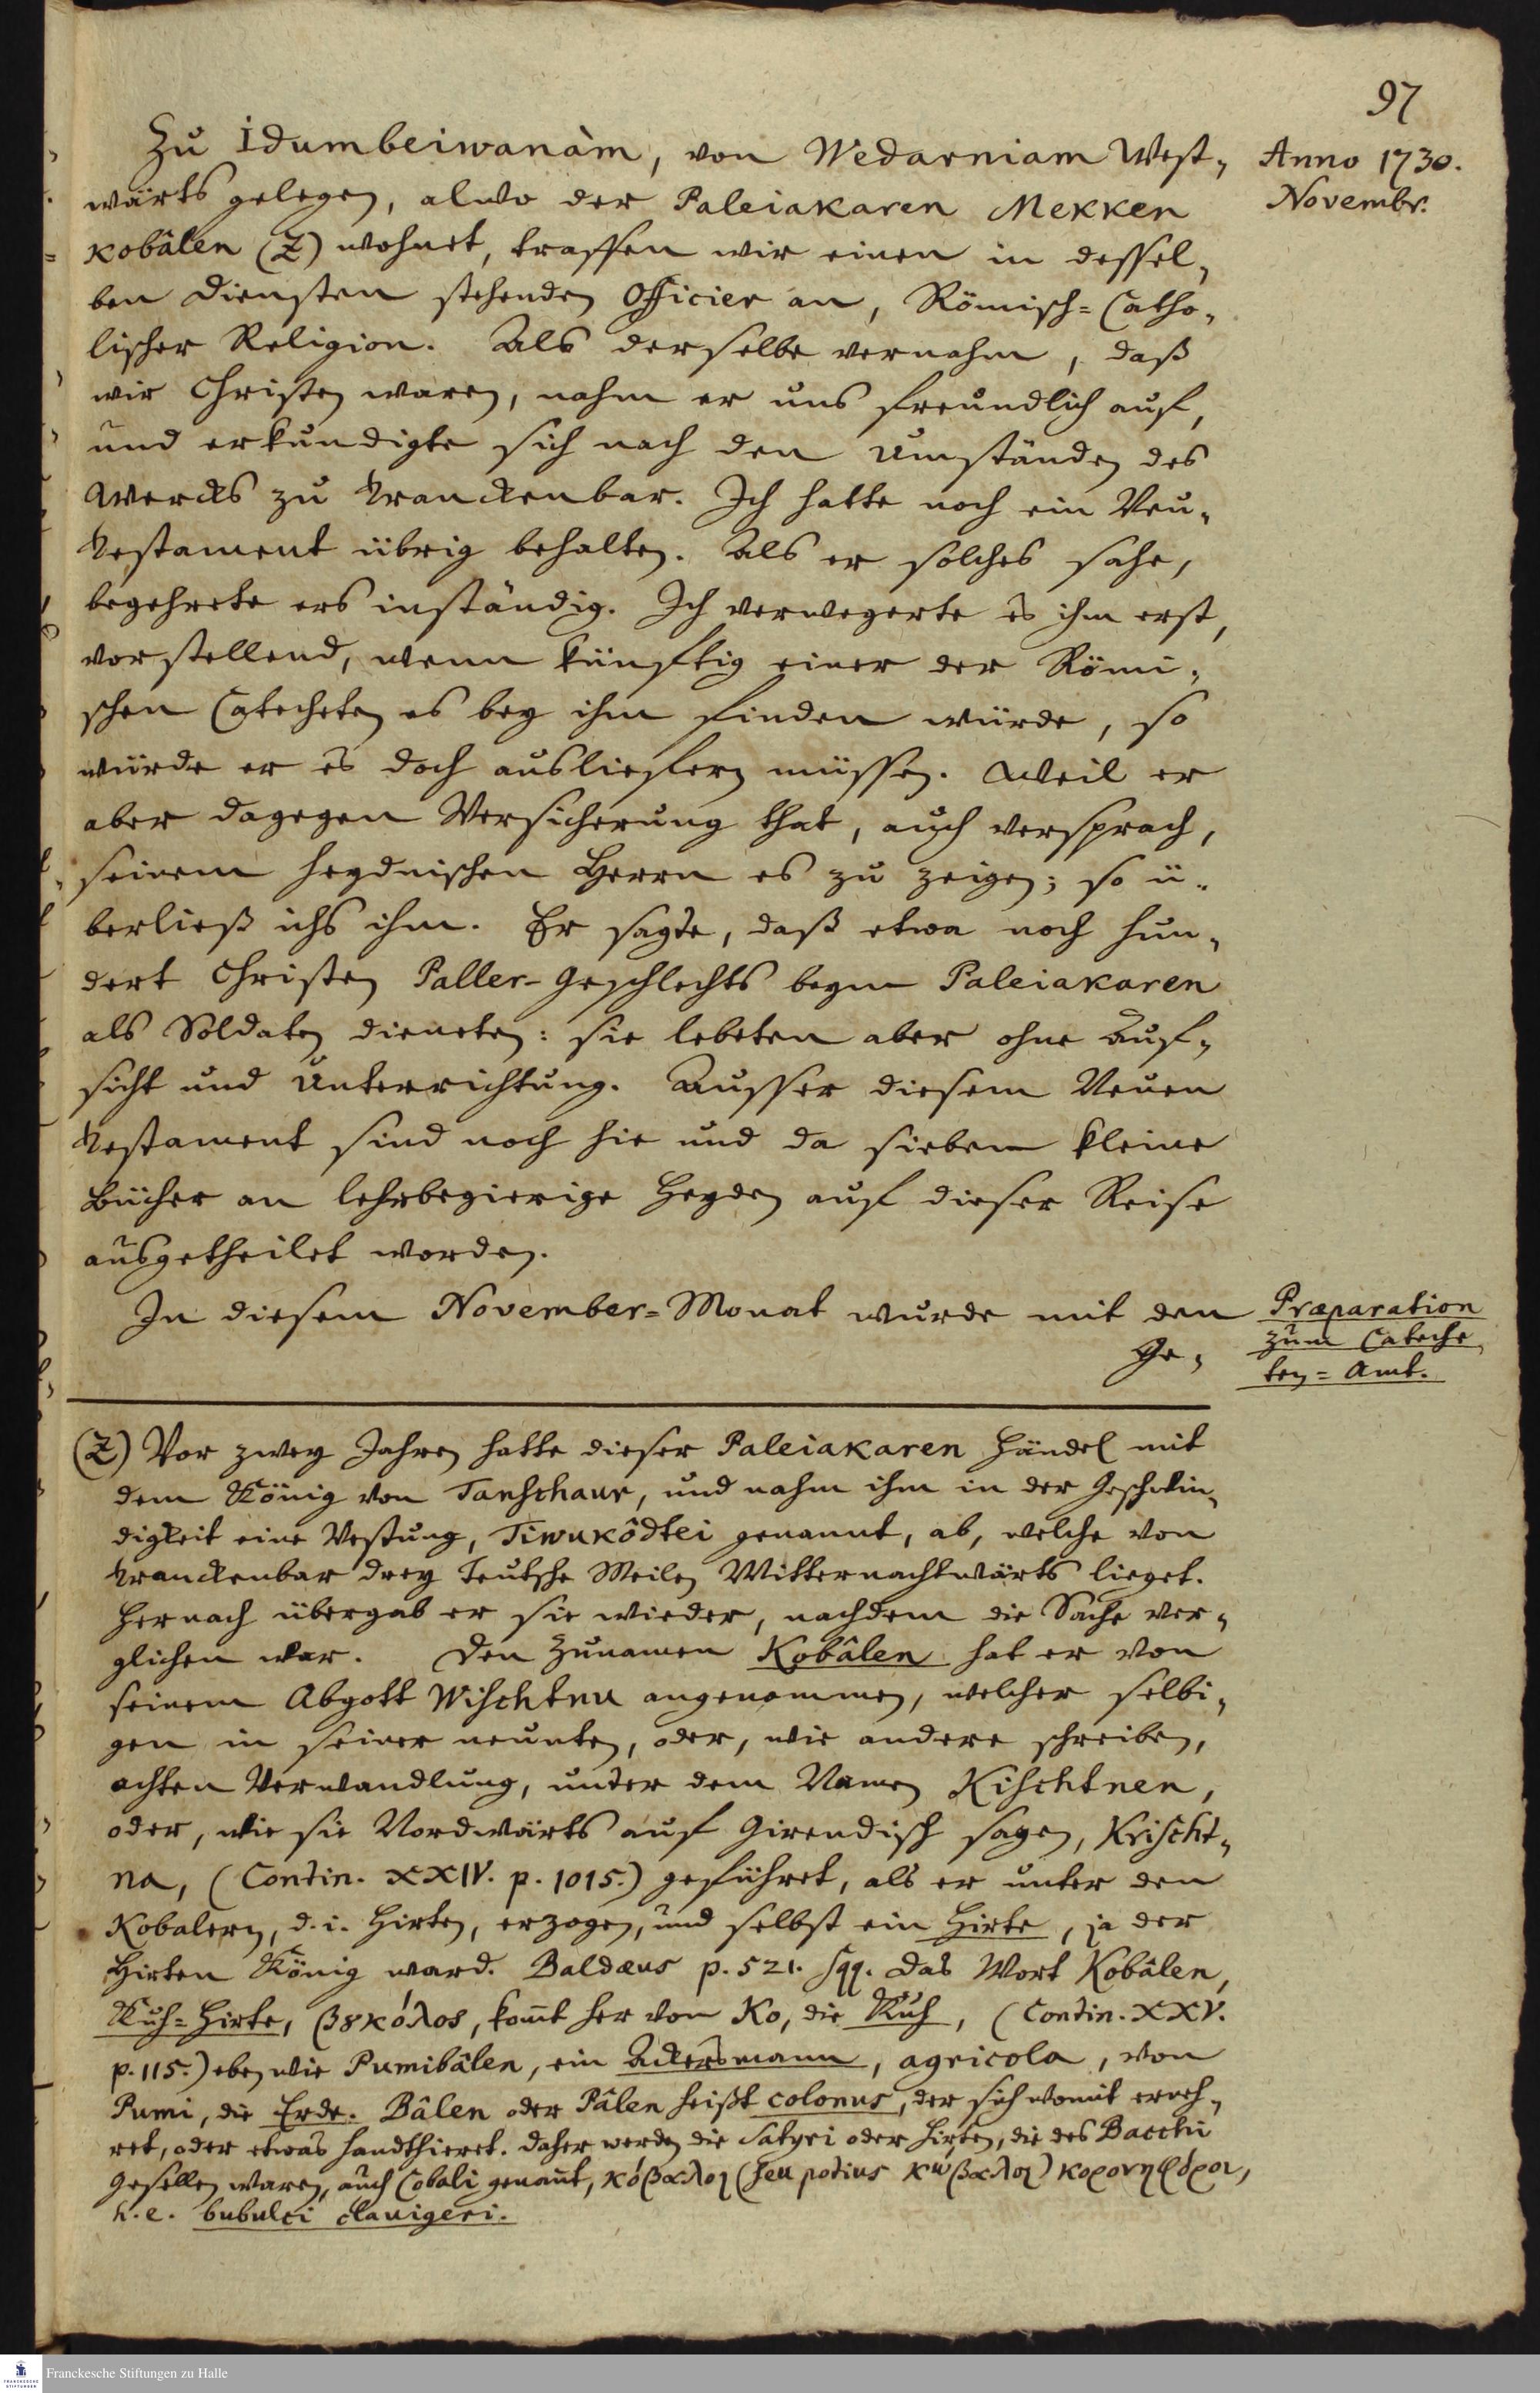 97
Anno 1730.
Novembr.
Zu Idumbeiwanàm, von Wedarniam West-
wärts gelegen, alwo der Paleiakaren Mekken
kobâlen (Z) wohnet, traffen wir einen in dessel-
ben Diensten stehenden Officier an, Römisch-Catho-
lischer Religion. Als derselbe vernahm, daß
wir Christen waren, nahm er uns freundlich auf,
und erkundigte sich nach den Umständen des
Wercks zu Tranckenbar. Ich hatte noch ein Neu-
Testament übrig behalten. Als er solches sahe,
begehrete ers inständig. Ich verwegerte es ihm erst,
vorstellend, wenn künftig einer der Römi-
schen Catecheten es bey ihm finden würde, so
würde er es doch ausliefern müssen. Weil er
aber dagegen Versicherung that, auch versprach,
seinem heydnischen Herrn es zu zeigen; so ü-
berließ ichs ihm. Er sagte, daß etwa noch hun-
dert Christen Paller-Geschlechts beym Paleiakaren
als Soldaten dieneten: sie lebeten aber ohne Auf-
sicht und Unterrichtung. Ausser diesem Neuen
Testament sind noch hie und da sieben kleine
Bücher an lehrbegierige Heyden auf dieser Reise
ausgetheilet worden.
In diesem November-Monat wurde mit den
Ge-
Præparation
zum Cateche-
ten-Amt.
(Z) Vor zwey Jahren hatte dieser Paleiakaren Händel mit
dem König von Tanschaur, und nahm ihm in der Geschwin-
digkeit eine Vestung, Tiwukôdtei genannt, ab, welche von
Tranckenbar drey Teutsche Meilen Mitternachtwärts lieget.
Hernach übergab er sie wieder, nachdem die Sache ver-
glichen war. Den Zunamen Kobâlen hat er von
seinem Abgott Wischtnu angenommen, welcher selbi-
gen in seiner neunten, oder, wie andere schreiben,
achten Verwandlung, unter dem Namen Kischtnen,
oder, wie sie Nordwärts auf Girendisch sagen, Krischt-
na, (Contin. XXIV. p. 1015.) geführet, als er unter den
Kobalern, d. i. Hirten, erzogen, und selbst ein Hirte, ja der
Hirten König ward. Baldæus p. 521. sqq. Das Wort Kobâlen,
Kuh-Hirte, βȣκόλος, kom̄t her von Ko, die Kuh, (Contin. XXV.
p. 115.) eben wie Pumibâlen, ein Ackersmann, agricola, von
Pumi, die Erde. Bâlen oder Pâlen heißt colonus, der sich womit erneh-
ret, oder etwas handthieret. Daher werden die Satyri oder Hirten, die des Bacchi
Gesellen waren, auch Cobali genan̄t, κόβαλοι (seu potius κώβαλοι) κορονηφόροι,
h. e. bubulci clavigeri.
Franckesche Stiftungen zu Halle
FRANCKESCHE
STIFTUNGEN